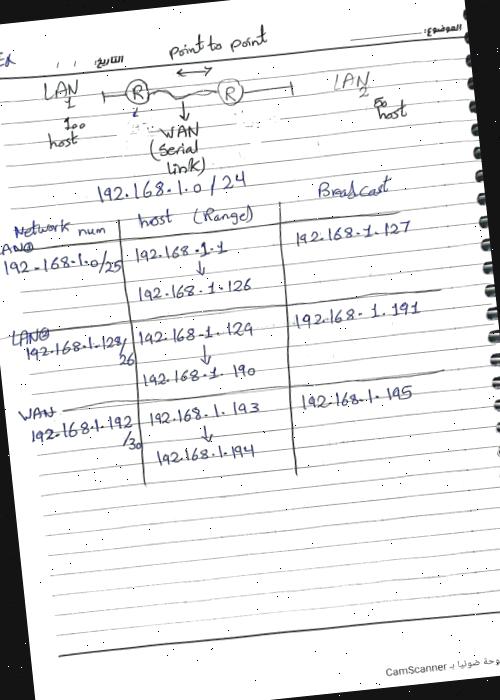 الموضوع:
التاريخ: / /
Point to point
LAN 1
R
R
LAN 2
100 host
50 host
WAN
(Serial
Link)
192.168.1.0/24
Network num
host (Range)
Broadcast
LAN①
192.168.1.0/25
192.168.1.1
↓
192.168.1.126
192.168.1.127
LAN②
192.168.1.128/26
192.168.1.129
↓
192.168.1.190
192.168.1.191
WAN
192.168.1.192/30
192.168.1.193
↓
192.168.1.194
192.168.1.195
ضوئيا بـ CamScanner